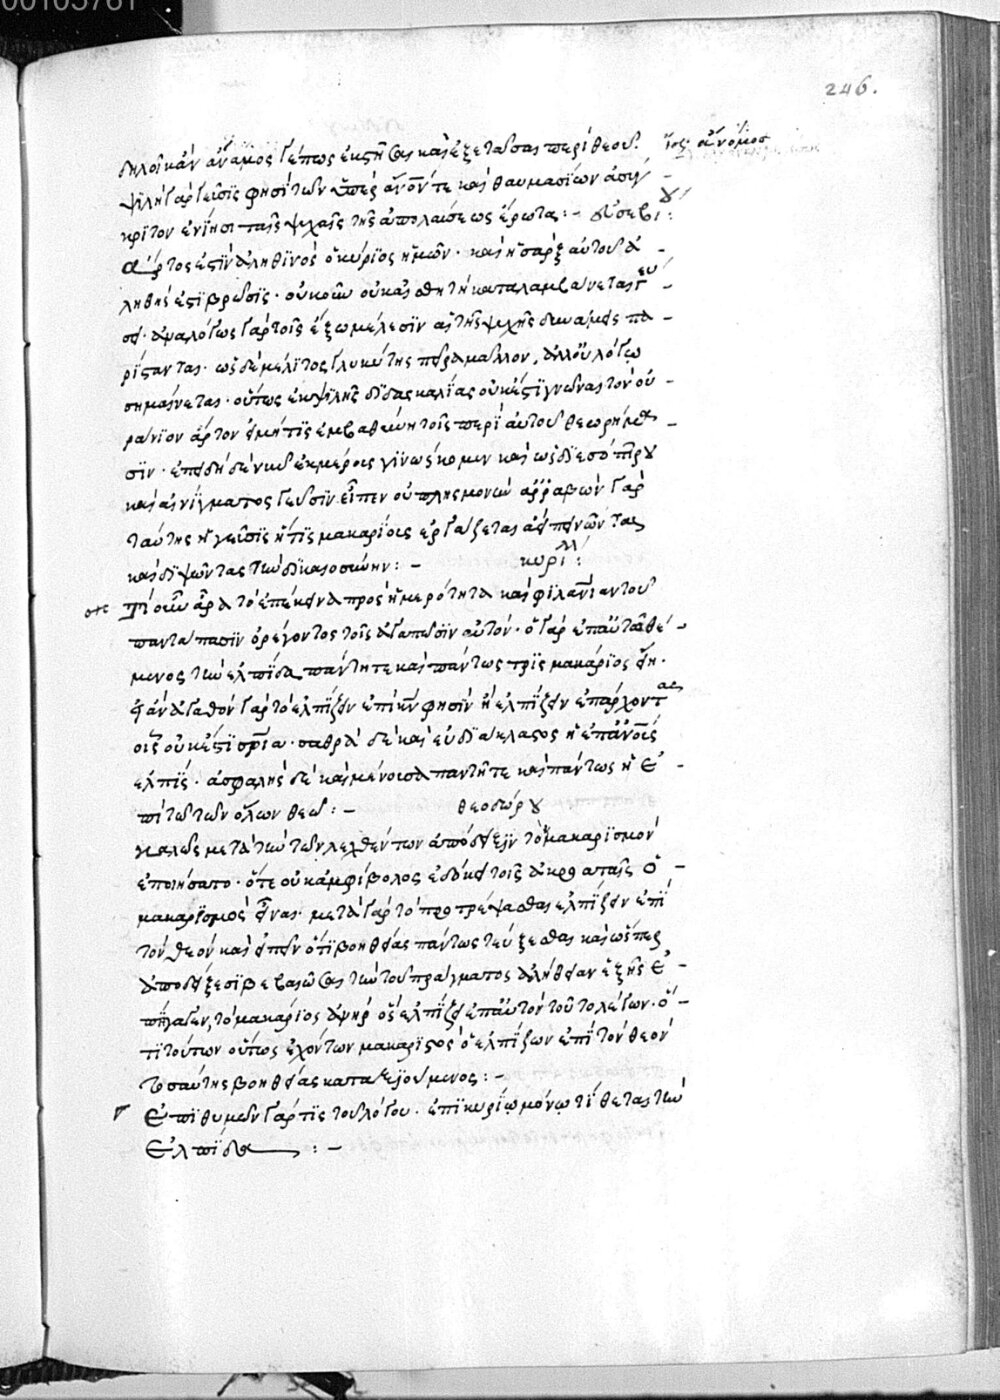 00103761
246.
δηλοῖ κἂν ἄνομος γέ πως ἐκζητῆσαι καὶ ἐξετάσαι περὶ θεοῦ. ἄνομος
ψιλὴ γὰρ γεῦσίς φησι τῶν ὑπὲρ νοῦν τε καὶ θαυμασίων ἀσύγ
κριτον ἐνίησι ταῖς ψυχαῖς τῆς ἀπολαύσεως ἔρωτα: – εὐσεβίου:
ἄρτος ἐστὶν ἀληθινὸς ὁ κύριος ἡμῶν· καὶ ἡ σὰρξ αὐτοῦ ἀ
ληθής ἐστι βρῶσις· οὐκοῦν οὐκ αἰσθητὴ καταλαμβάνεται γεύ
σει· ἀναλόγως γὰρ τοῖς ἔξω μέλεσιν αἱ τῆς ψυχῆς δυνάμεις πα
ρίστανται· ὡς δὲ μέλιτος γλυκύτης πείρα μᾶλλον, ἀλλ' οὐ λόγω
σημαίνεται· οὕτως ἐκ ψιλῆς διδασκαλίας οὐκ ἔστι γνῶναι τὸν οὐ
ράνιον ἄρτον εἰ μή τις ἐμβαθύνη τοῖς περὶ αὐτοῦ θεωρήμα
σιν· ἐπειδὴ δὲ νῦν ἐκ μέρους γινώσκομεν καὶ ὡς δι' ἐσόπτρου
καὶ αἰνίγματος γεῦσιν εἶπεν οὐ πλησμονὴν ἀρραβὼν γὰρ
ταύτης ἡ γεῦσις ἥτις μακαρίους ἐργάζεται ἀεὶ πεινῶντας
καὶ διψῶντας τὴν δικαιοσύνην: – κυρίλλ:
Τί οὖν ἄρα τὸ ἐπέκεινα πρὸς ἡμερότητα καὶ φιλανίαν τοῦ
πανταπασὶν ὀρέγοντος τοῖς ἀγαπῶσιν αὐτόν· ὁ γὰρ ἐπ' αὐτῶ θέ
μενος τὴν ἐλπίδα πάντη τε καὶ πάντως τρὶς μακάριος εἴη·
εἰ ἀγαθὸν γὰρ τὸ ἐλπίζειν ἐπὶ κν φησὶν ἢ ἐλπίζειν ἐπ' ἄρχοντας
οἷς οὐκ ἔστι σρία· σαθρὰ δὲ καὶ εὐδιάκλαστος ἡ ἐπ' ἀνοις
ἐλπίς· ἀσφαλὴς δὲ καὶ μένουσα παντῆ τε καὶ πάντως ἡ ἐ
πὶ τῶ τῶν ὅλων θεῶ: – θεοδώρου
καλῶς μετὰ τὴν τῶν λεχθέντων ἀπόδειξιν τὸν μακαρισμὸν
ἐποιήσατο· ὅτε οὐκ ἀμφίβολος ἐδόκει τοῖς ἀκροαταῖς ὁ
μακαρισμὸς εἶναι· μετὰ γὰρ τὸ προτρέψασθαι ἐλπίζειν ἐπὶ
τὸν θεὸν καὶ εἰπεῖν ὅτι βοηθείας πάντως τεύξεσθαι καὶ ὥσπερ
ἀποδείξεσι βεβαιῶσαι τὴν τοῦ πράγματος ἀλήθειαν ἑξῆς ἐ
πήγαγεν, τὸ μακάριος ἀνὴρ ὃς ἐλπίζει ἐπ' αὐτὸν τοῦτο λέγων· ὅ
τι τούτων οὕτως ἐχόντων μακαριστὸς ὁ ἐλπίζων ἐπὶ τὸν θεὸν
τοσαύτης βοηθείας καταξιούμενος: –
Ἐπιθυμῶν γάρ τις τοῦ λόγου· ἐπὶ κυρίω μόνω τίθεται τὴν
ἐλπίδα : –